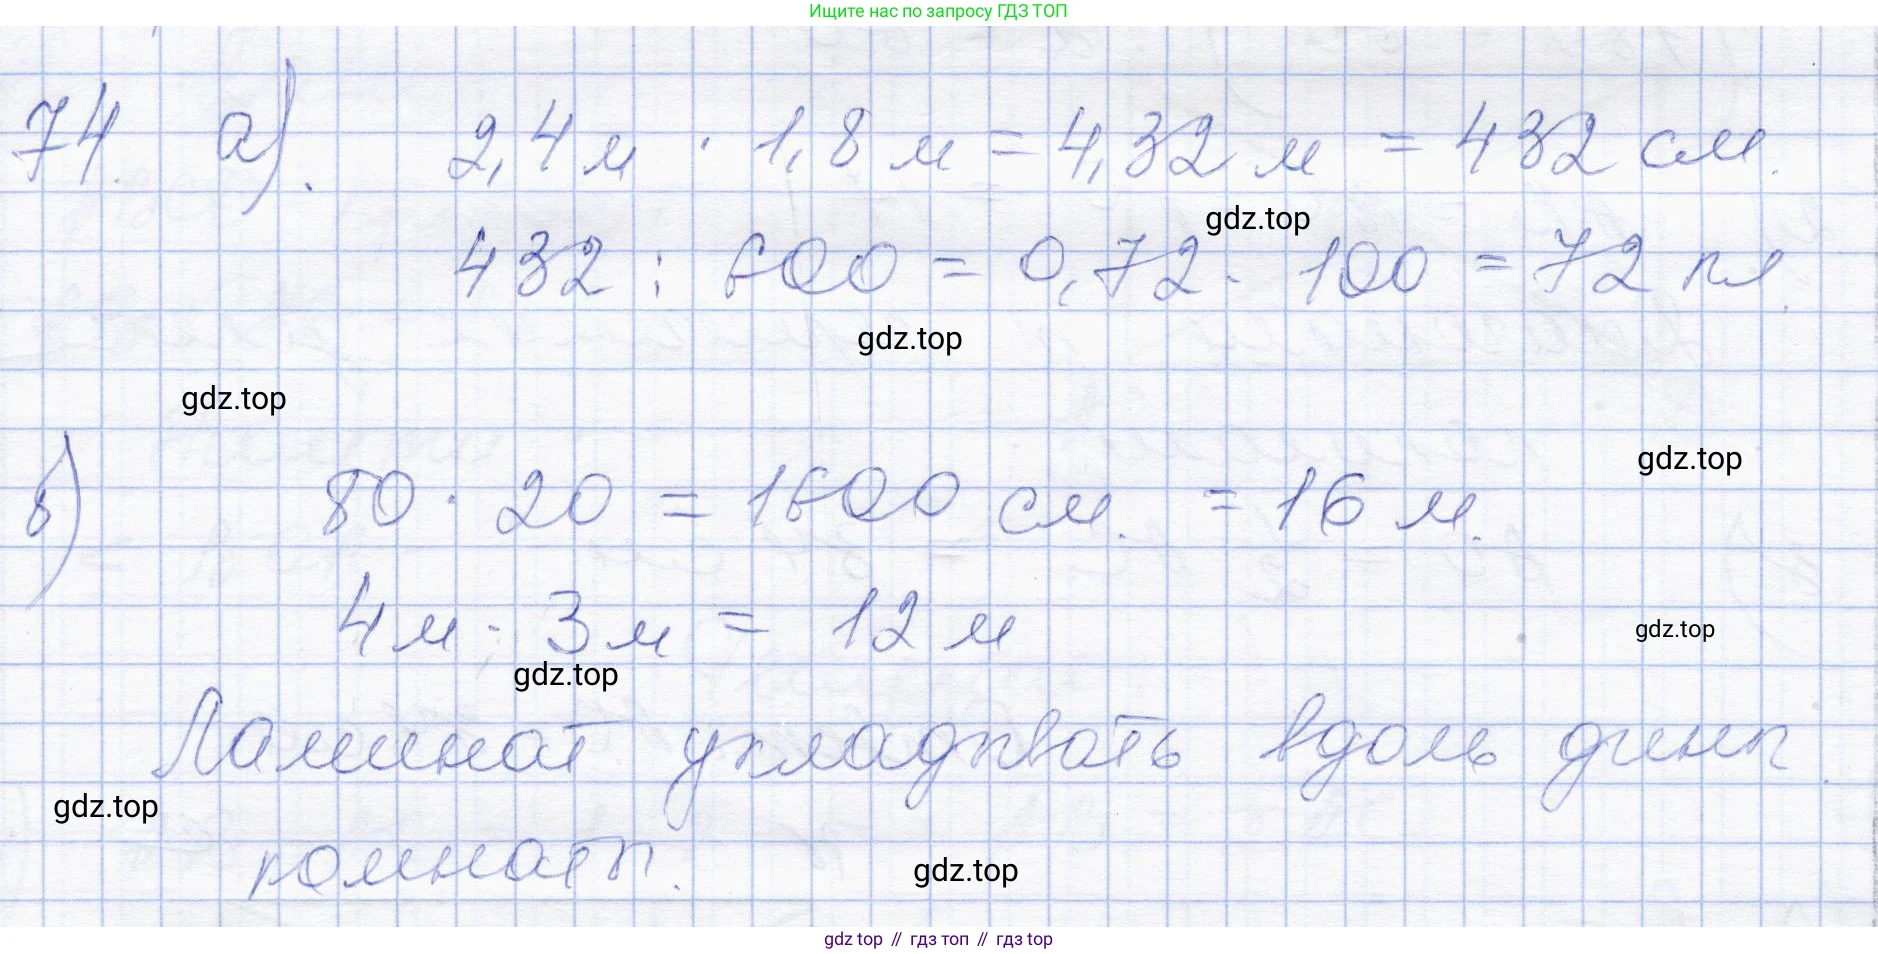 Ищите нас по запросу ГДЗ ТОП
74. а). 2,4 м · 1,8 м = 4,32 м = 432 см.
gdz.top
432 : 600 = 0,72 · 100 = 72 пл.
gdz.top
gdz.top
в) 80 · 20 = 1600 см. = 16 м.
gdz.top
4 м · 3 м = 12 м
gdz.top
gdz.top
Ламинат укладывать вдоль длины
gdz.top
комнаты.
gdz.top
gdz top // гдз топ // гдз top